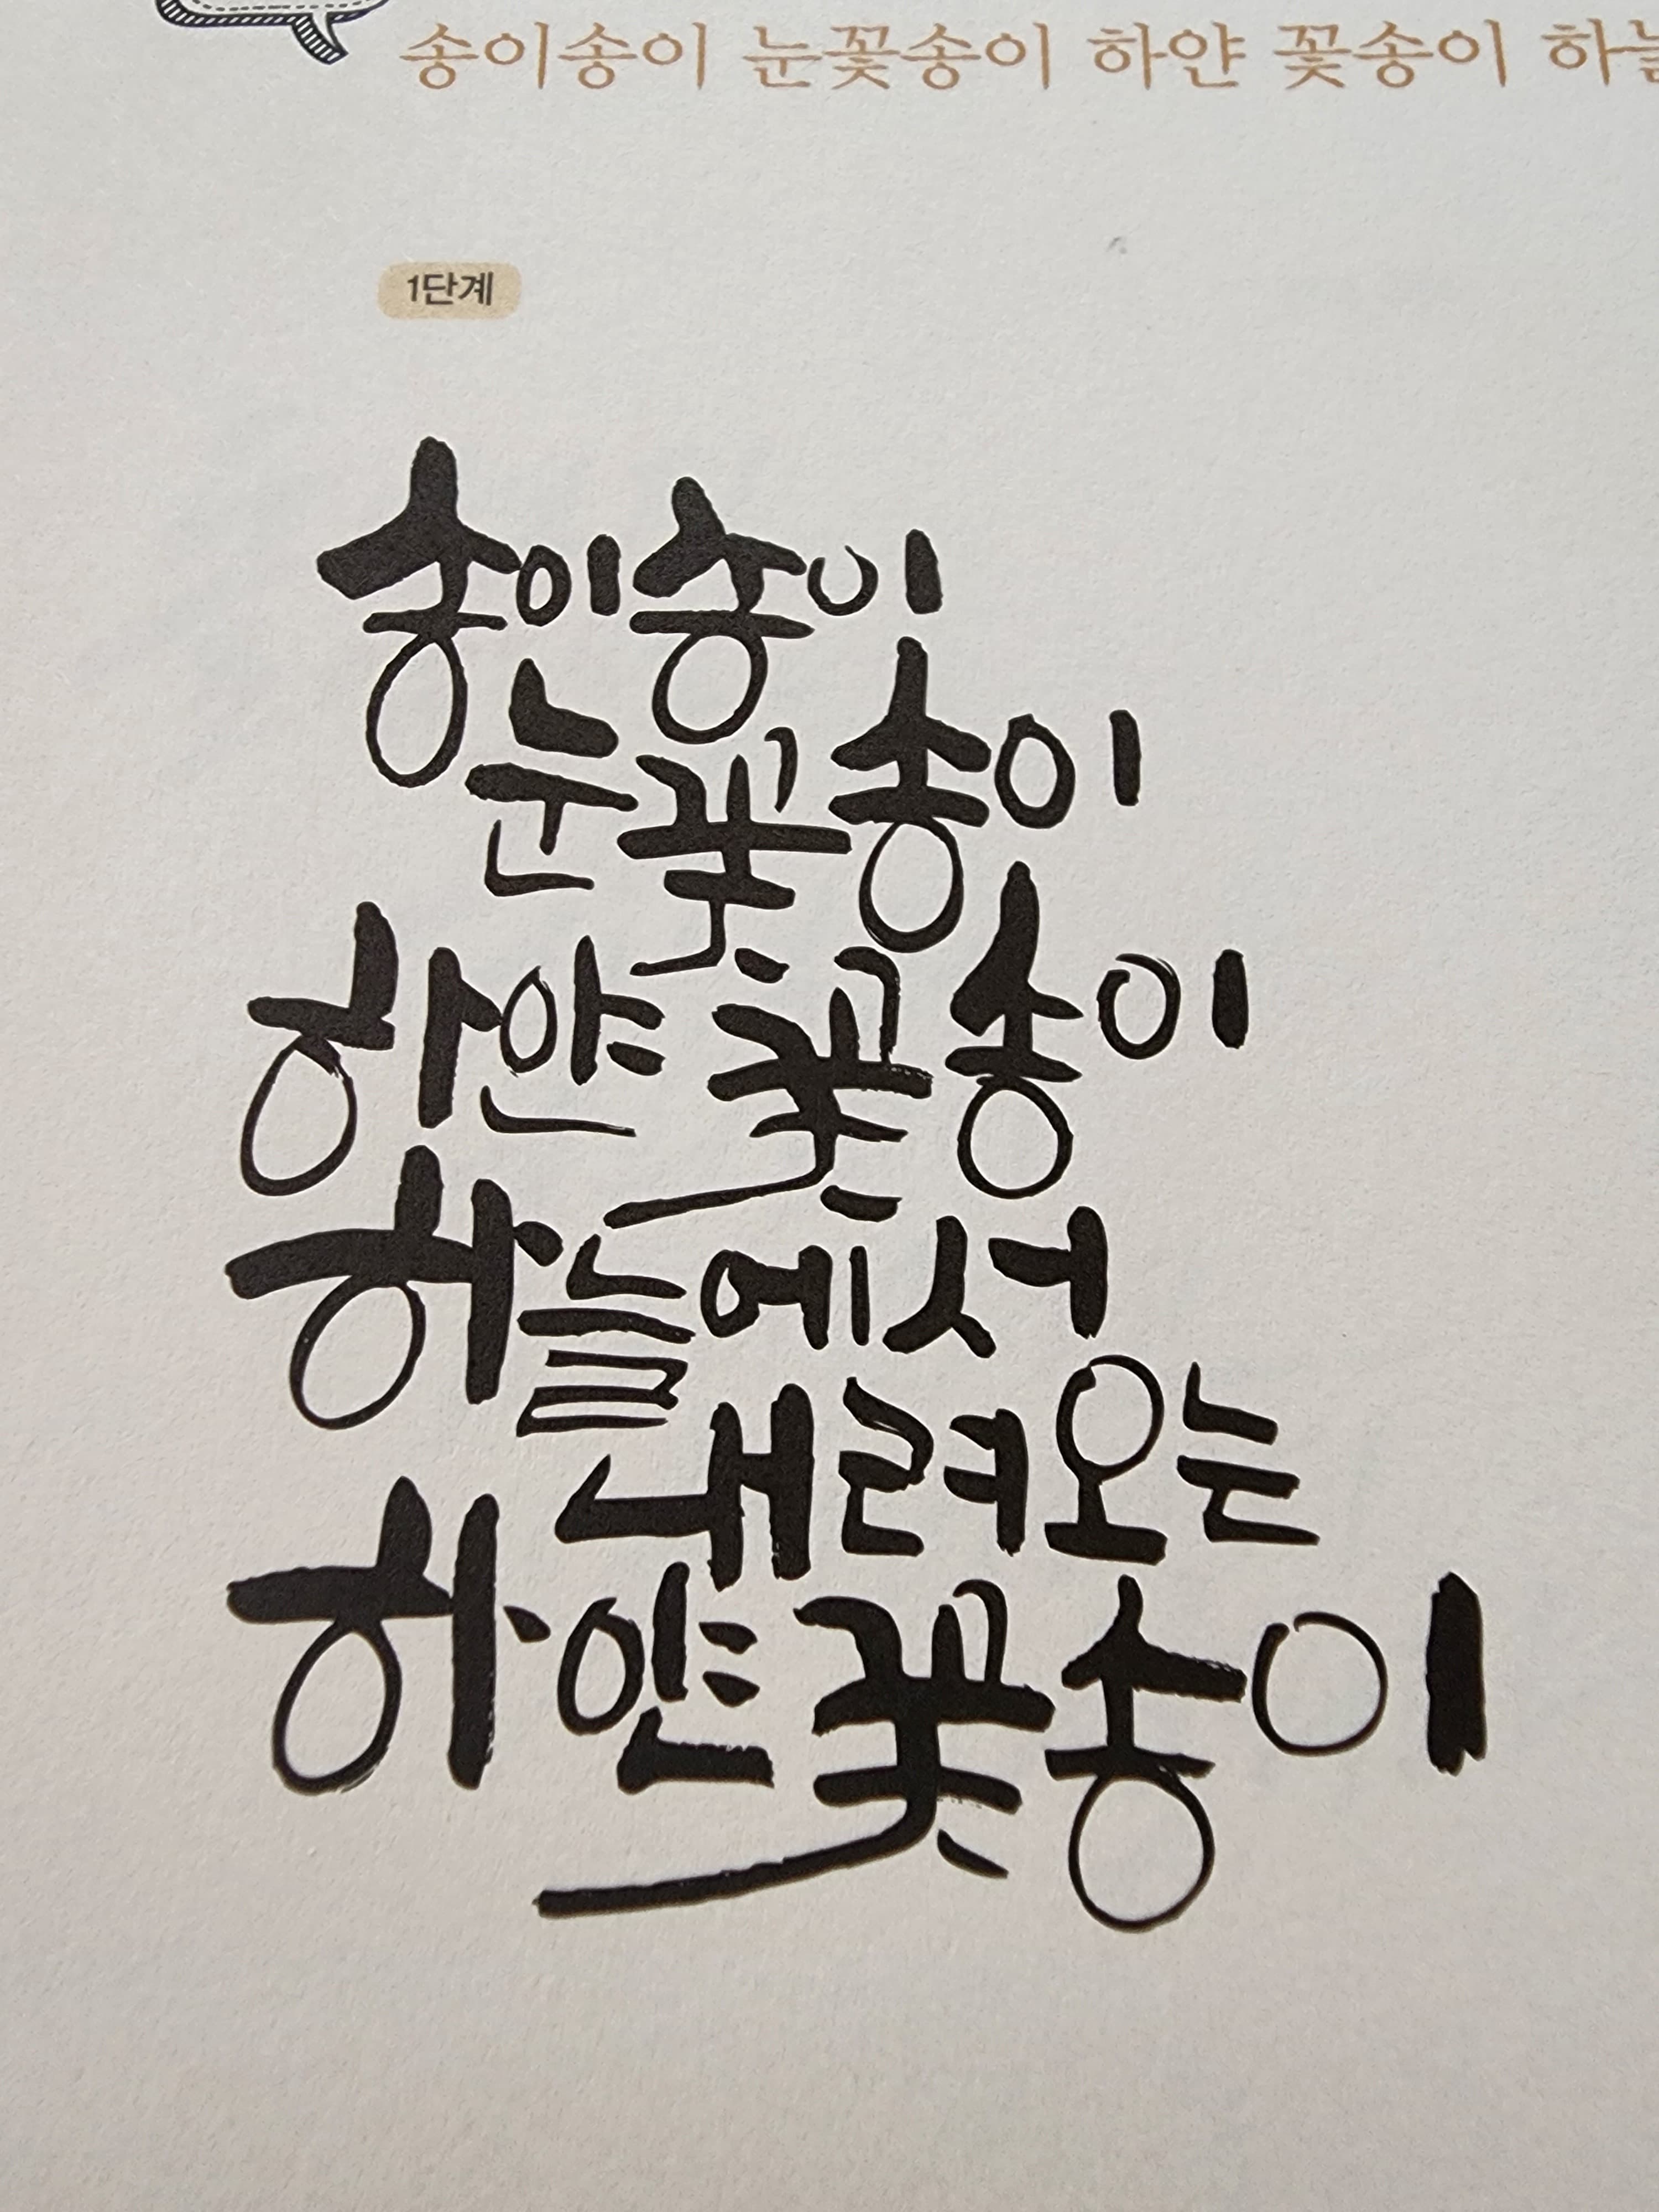 송이송이 눈꽃송이 하얀 꽃송이
1단계
송이송이
눈꽃송이
하얀 꽃송이
하늘에서
내려오는
하얀 꽃송이